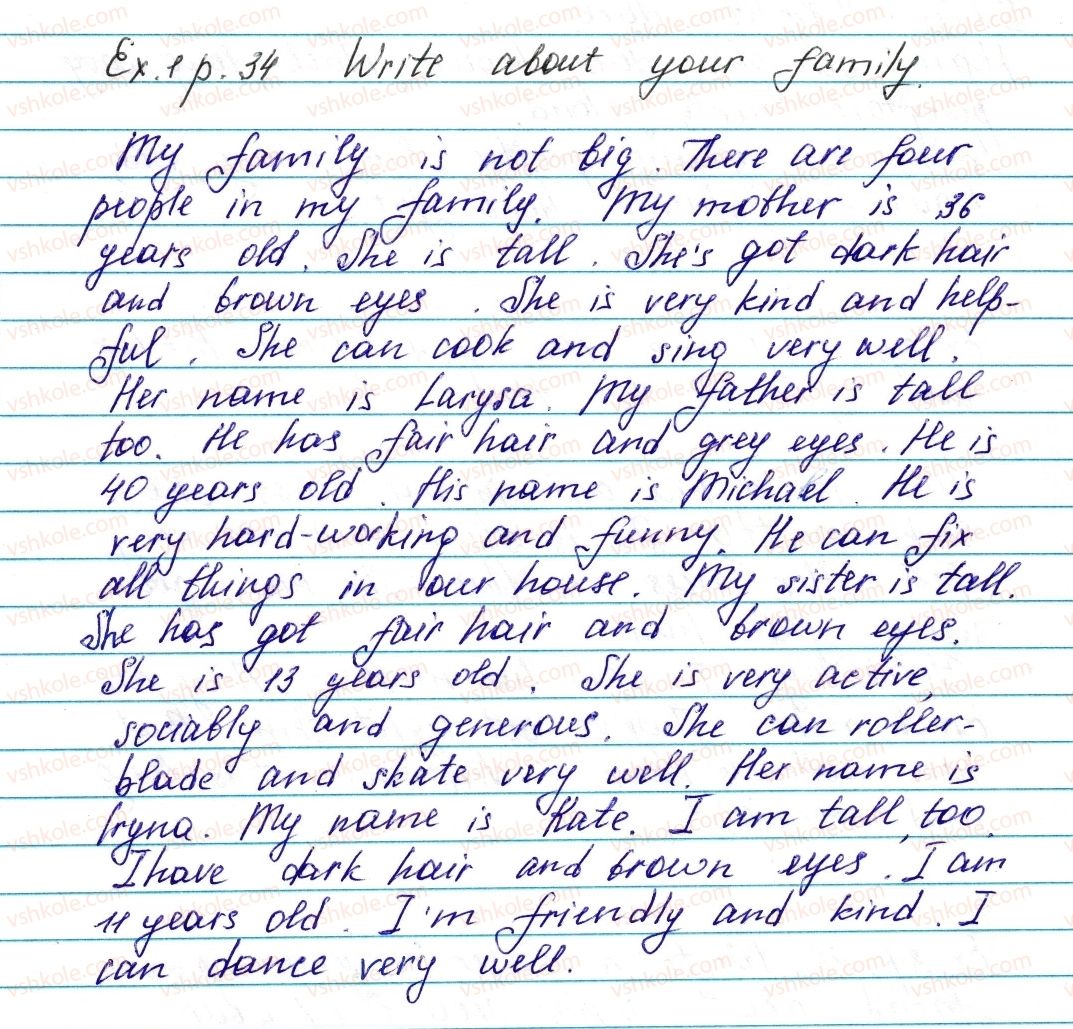 Ex. 1 p. 34 Write about your family.
My family is not big. There are four
people in my family. My mother is 36
years old. She is tall. She's got dark hair
and brown eyes. She is very kind and help-
ful. She can cook and sing very well.
Her name is Larysa. My father is tall
too. He has fair hair and grey eyes. He is
40 years old. His name is Michael. He is
very hard-working and funny. He can fix
all things in our house. My sister is tall.
She has got fair hair and brown eyes.
She is 13 years old. She is very active,
sociably and generous. She can roller-
blade and skate very well. Her name is
Iryna. My name is Kate. I am tall, too.
I have dark hair and brown eyes. I am
11 years old. I'm friendly and kind. I
can dance very well.
vshkole.com